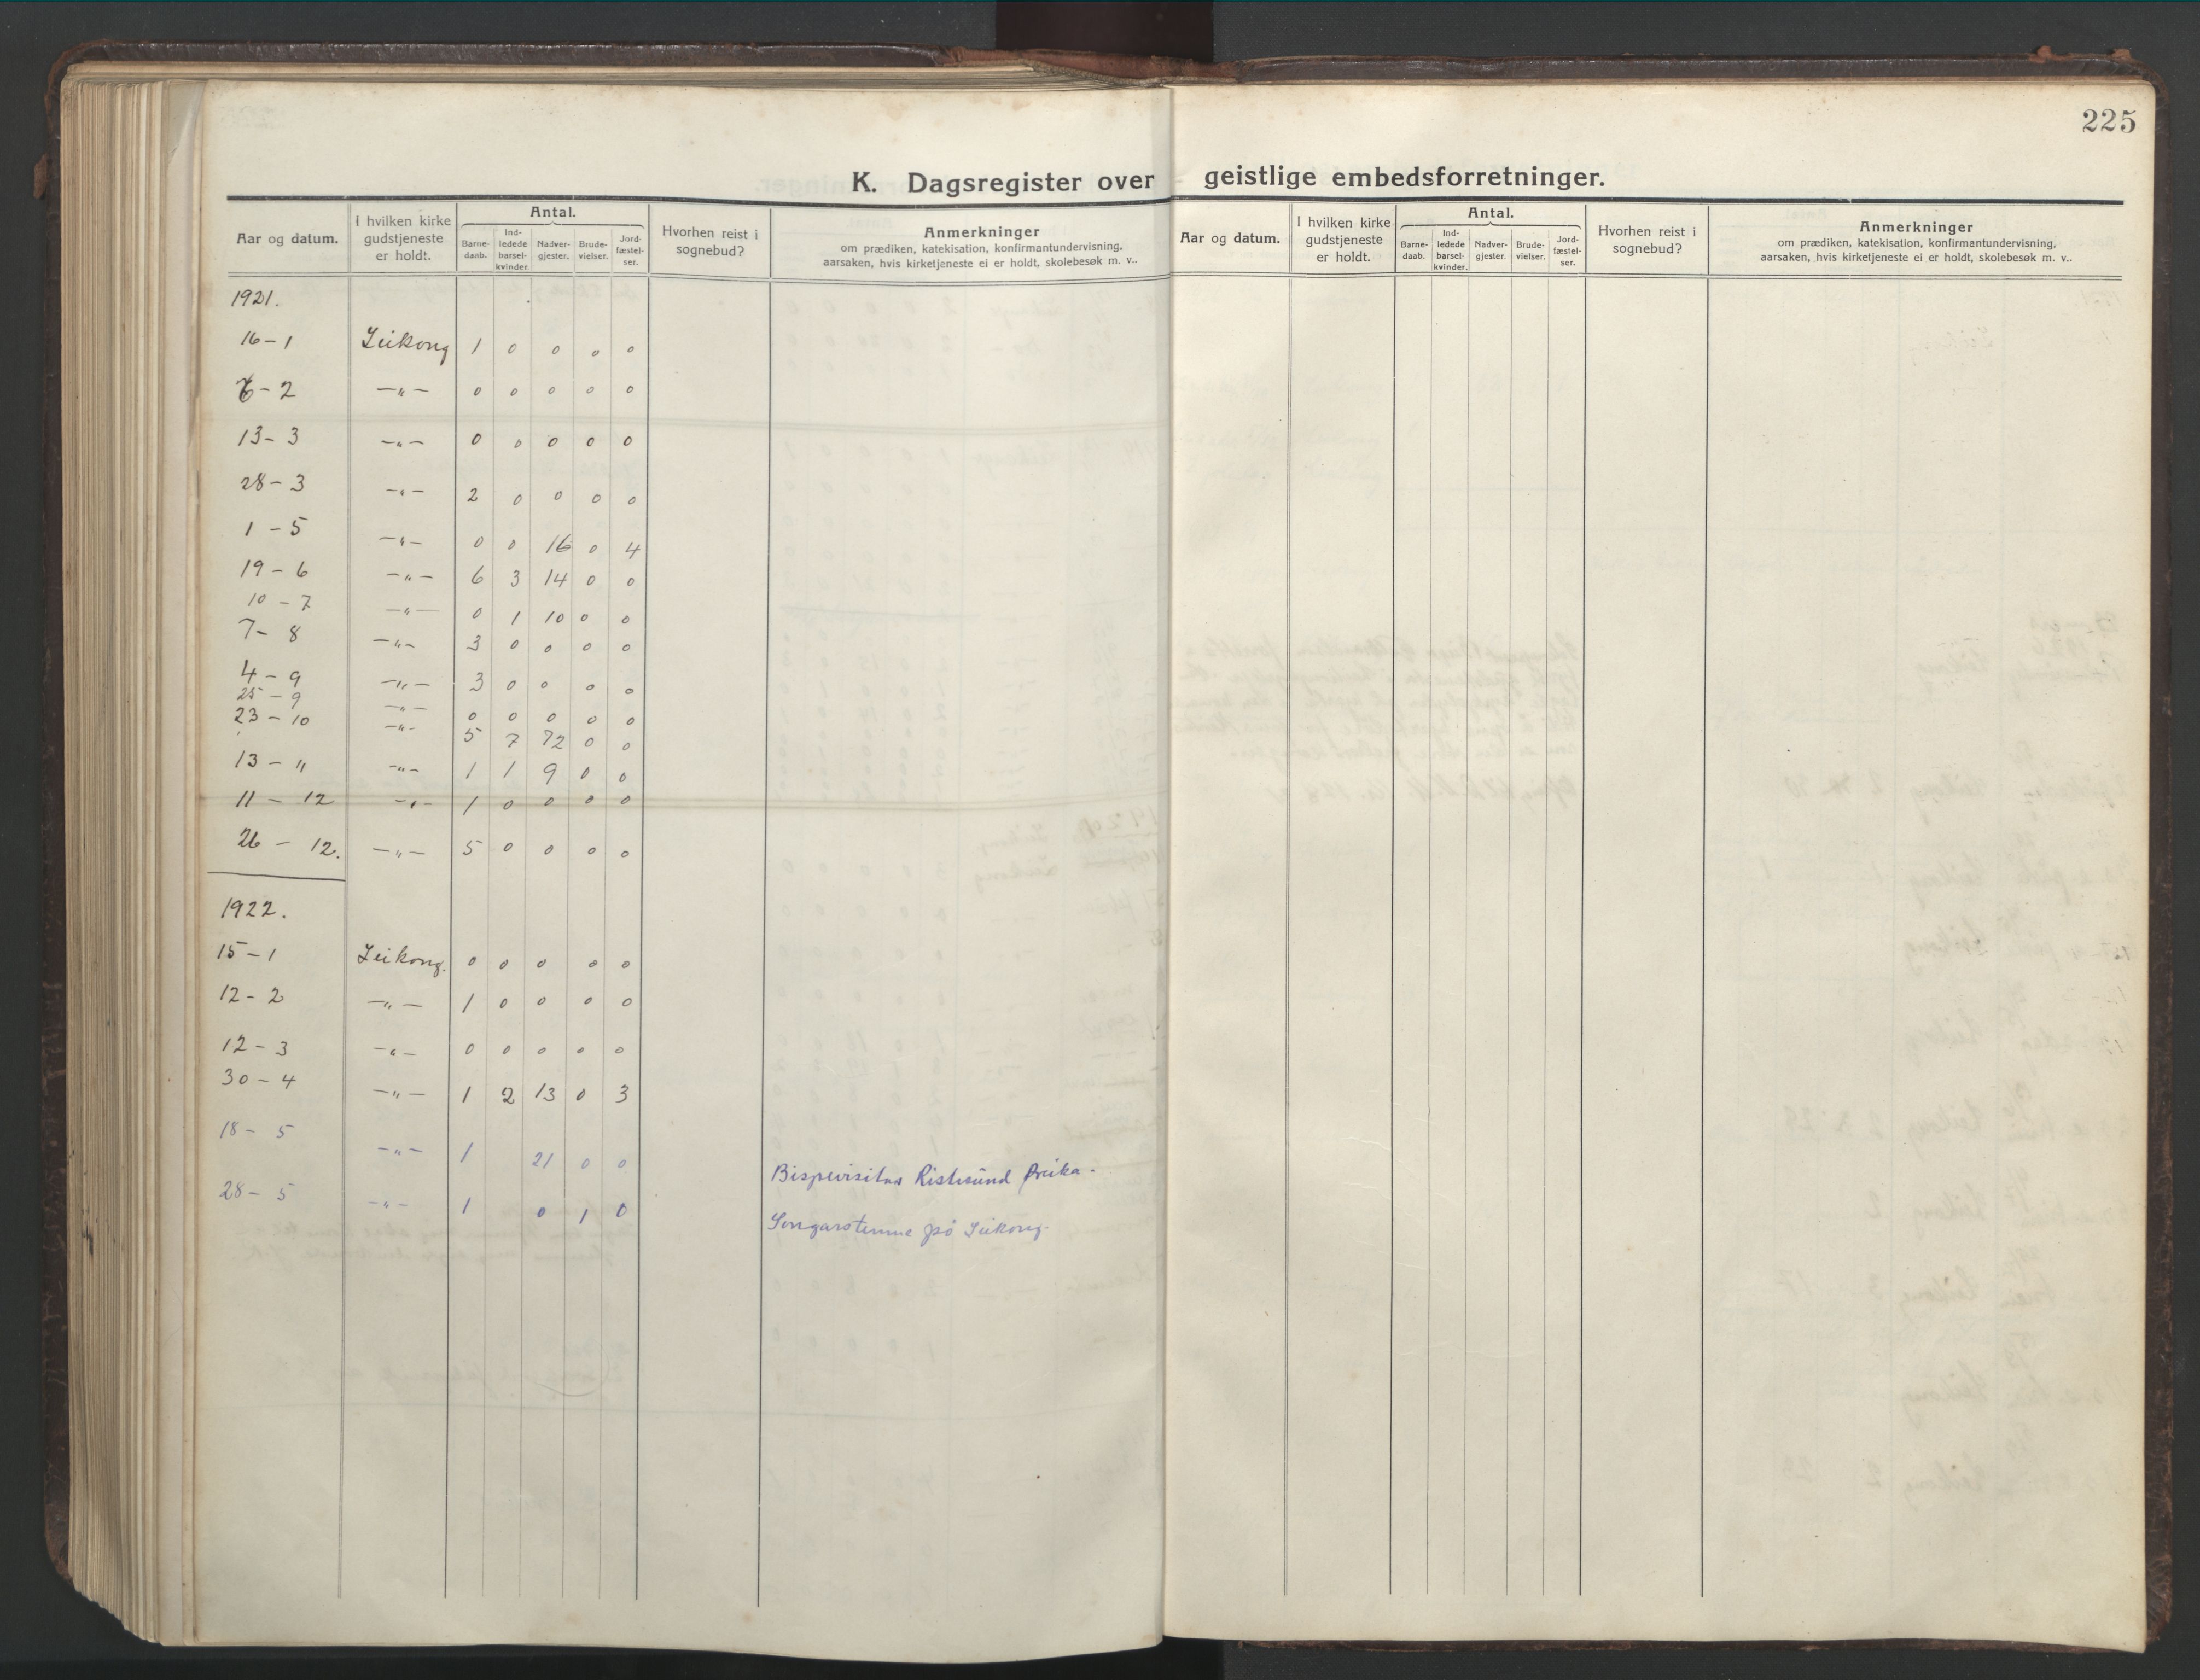 225
K. Dagsregister over geistlige embedsforretninger.
Aar og datum. I hvilken kirke gudstjeneste er holdt. Antal. Barne-daab. Ind-ledede barsel-kvinder. Nadver-gjester. Brude-vielser. Jord-fæstel-ser. Hvorhen reist i sognebud? Anmerkninger om prædiken, katekisation, konfirmantundervisning, aarsaken, hvis kirketjeneste ei er holdt, skolebesøk m. v..
Aar og datum. I hvilken kirke gudstjeneste er holdt. Antal. Barne-daab. Ind-ledede barsel-kvinder. Nadver-gjester. Brude-vielser. Jord-fæstel-ser. Hvorhen reist i sognebud? Anmerkninger om prædiken, katekisation, konfirmantundervisning, aarsaken, hvis kirketjeneste ei er holdt, skolebesøk m. v..
1921.
16-1 Leikong 1 0 0 0 0
6-2 -"- 0 0 0 0 0
13-3 -"- 0 0 0 0 0
28-3 -"- 2 0 0 0 0
1-5 -"- 0 0 16 0 4
19-6 -"- 6 3 14 0 0
10-7 -"- 0 1 10 0 0
7-8 -"- 3 0 0 0 0
4-9 -"- 3 0 0 0 0
25-9 -"- 0 0 0 0 0
23-10 -"- 5 7 72 0 0
13-" -"- 1 1 9 0 0
11-12 -"- 1 0 0 0 0
26-12. -"- 5 0 0 0 0
1922.
15-1 Leikong. 0 0 0 0 0
12-2 -"- 1 0 0 0 0
12-3 -"- 0 0 0 0 0
30-4 -"- 1 2 13 0 3
18-5 -"- 1 21 0 0 Bispevisitas Ristesund
28-5 -"- 1 0 1 0 Songarstemne på Leikong.